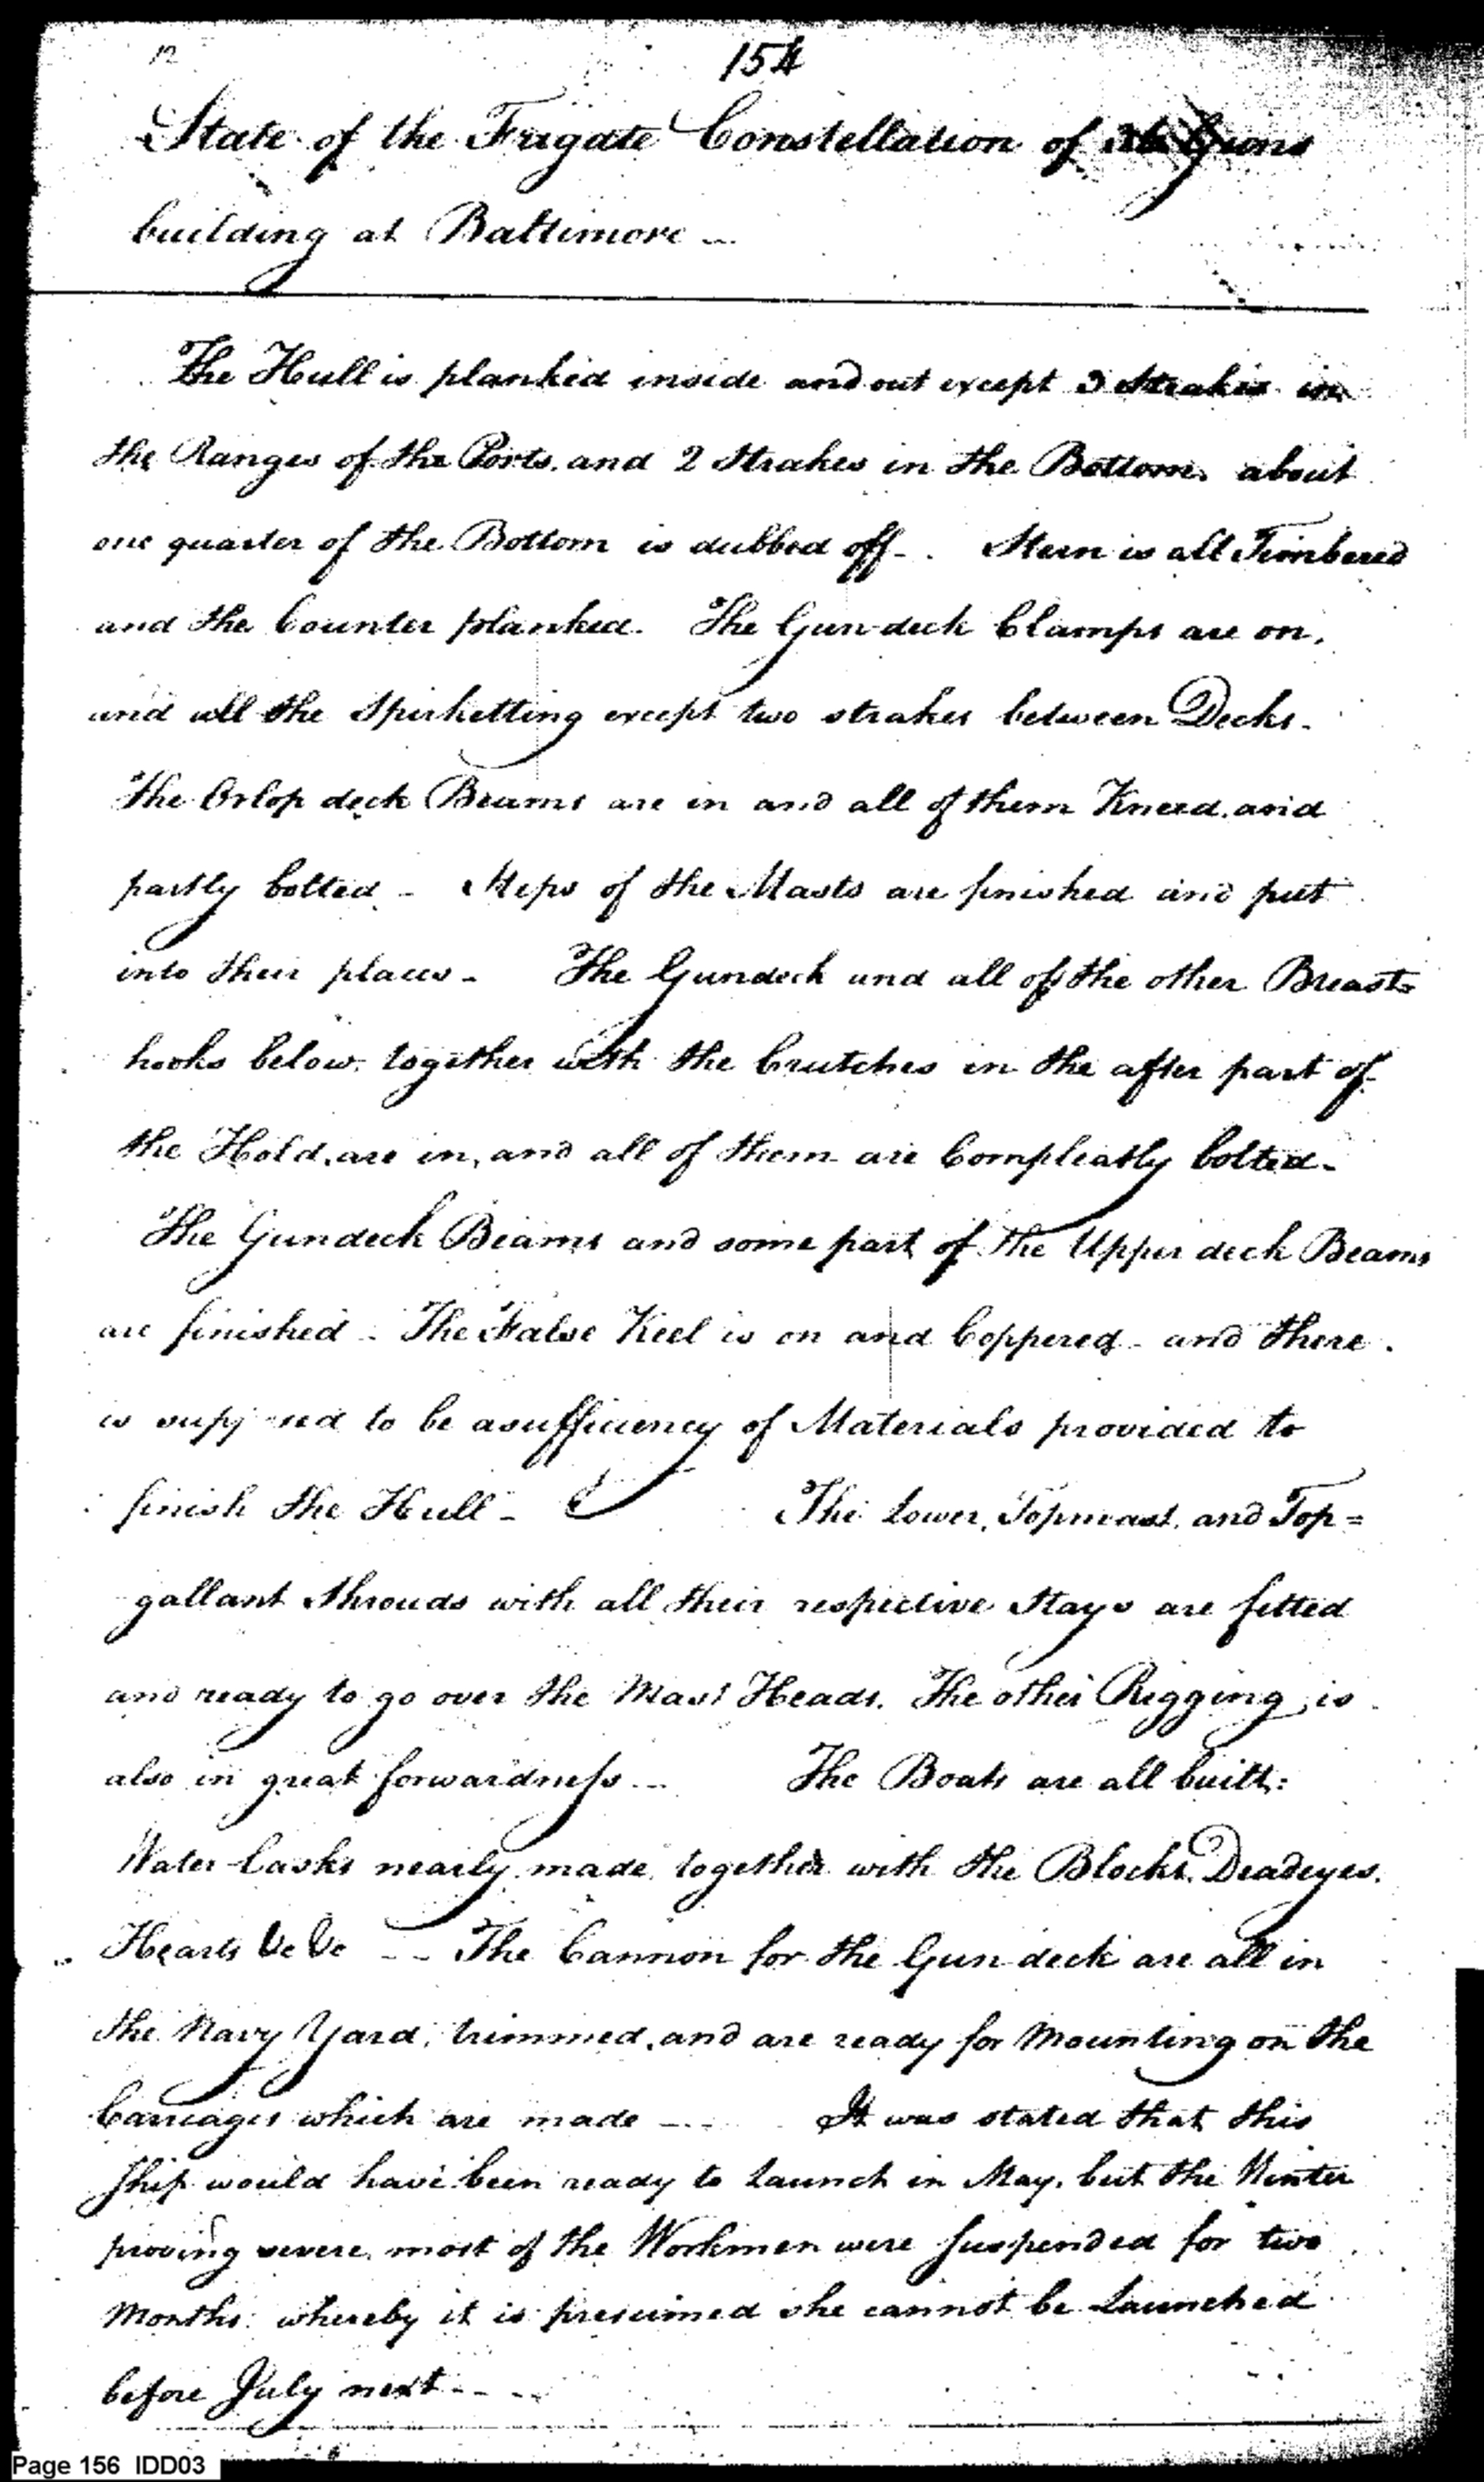 12
154
State of the Frigate Constellation of 36 Guns
building at Baltimore
The Hull is planked inside and out except 3 Strakes in
the Ranges of the Ports, and 2 Strakes in the Bottom, about
one quarter of the Bottom is dubbed off. Stern is all Timbered
and the Counter planked. The Gun deck Clamps are on,
and all the Spirketting except two strakes between Decks.
The Orlop deck Beams are in and all of them Kneed, and
partly bolted - Steps of the Masts are finished and put
into their places - The Gundeck and all of the other Breast=
hooks below, together with the Crutches in the after part of
the Hold, are in, and all of them are Compleatly bolted -
The Gundeck Beams and some part of the Upper deck Beams
are finished - The False Keel is on and Coppered - and there
is supposed to be a sufficiency of Materials provided to
finish the Hull - The Lower, Topmast, and Top=
gallant Shrouds with all their respective Stays are fitted
and ready to go over the Mast Heads. The other Rigging is
also in great forwardness -- The Boats are all built:
Water Casks nearly made, together with the Blocks, Deadeyes,
Hearts &c &c -- The Cannon for the Gun deck are all in
the Navy Yard, trimmed, and are ready for Mounting on the
Carriages which are made -- It was stated that this
Ship would have been ready to Launch in May, but the Winter
proving severe, most of the Workmen were Suspended for two
Months: whereby it is presumed she cannot be Launched
before July next --
Page 156 IDD03